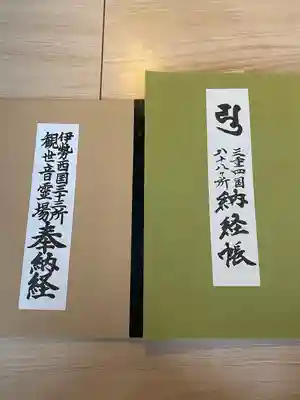 伊勢西国三十三所
観世音霊場
奉納経
三重四国
八十八ヶ所
納経帳